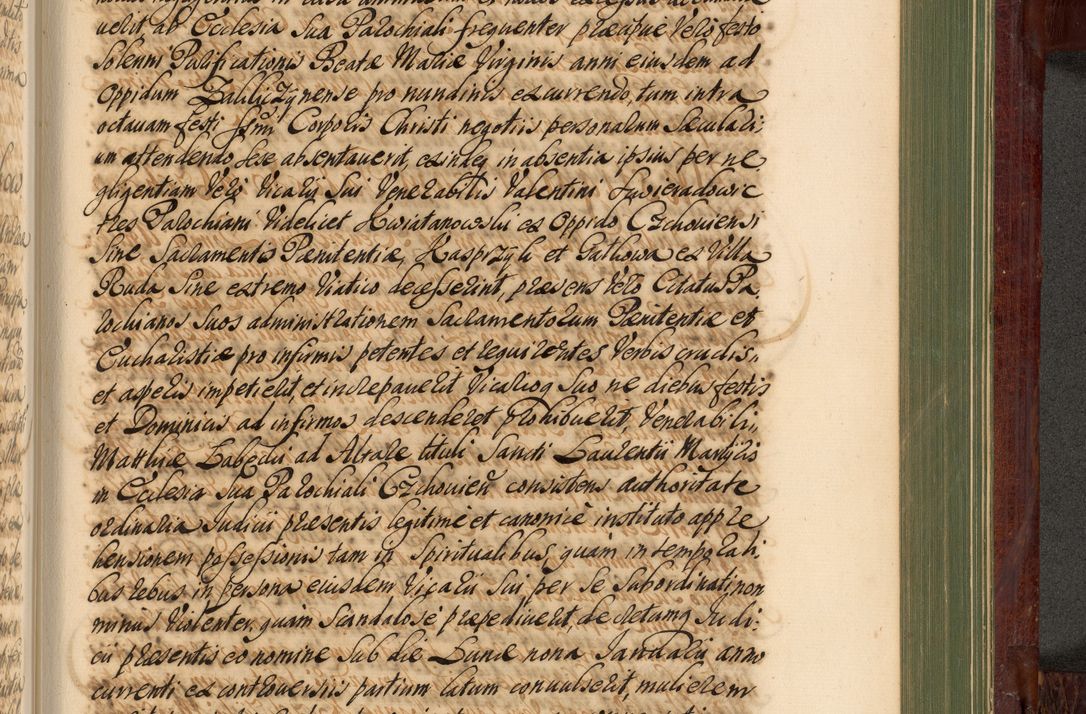 uerit ab Ecclesia Sua Parochiali frequenter præcipue Vero festo
Solenni Purificationis Beatæ Mariæ Virginis anni eiusdem ad
oppidum Zakliczynense pro nundinis excurrendo, tum intra
octauam festi Ssmi Corporis Christi negotiis personarum Sæculari:
um attendendo Sese absentauerit, exindeq in absentia ipsius per ne
gligentiam Vero Vicarii Sui Venerabilis Valentini Swieradowic
tres Parochiani Videlicet Kwiatanowski ex Oppido Czchouiensi
Sine Sacramentis Pænitentiæ, Kasprzyk et Gutkowa ex Villa
Ruda Sine extremo Viatico decesserint, præsens Vero Citatus Pa
rochianos Suos administrationem Sacramentorum Pænitentiæ et
Eucharistiæ pro infirmis petentes et requirentes Verbis crudis,,
et asperis impetierit, et increpauerit Vicarioq Suo ne diebus festis
et Dominicis ad infirmos descenderet prohibuerit, Venerabili,,
Matthiæ ad Altare tituli Sancti Laurentii Martyris
in Ecclesia Sua Parochiali Czchouien consistens authoritate
ordinaria Iudicii præsentis legitime et canonice instituto appre
hensionem possessionis tam in Spiritualibus, quam in tempo rali,
bus rebus in persona eiusdem Vicarii Sui per Se Subordinati, non
minus Violenter, quam Scandalose præpediuerit, decretumq Iudi:
cii præsentis eo nomine Sub die Lunæ nona Ianuarii anno
currenti ex controuersiis partium latum conuulserit, mulierem